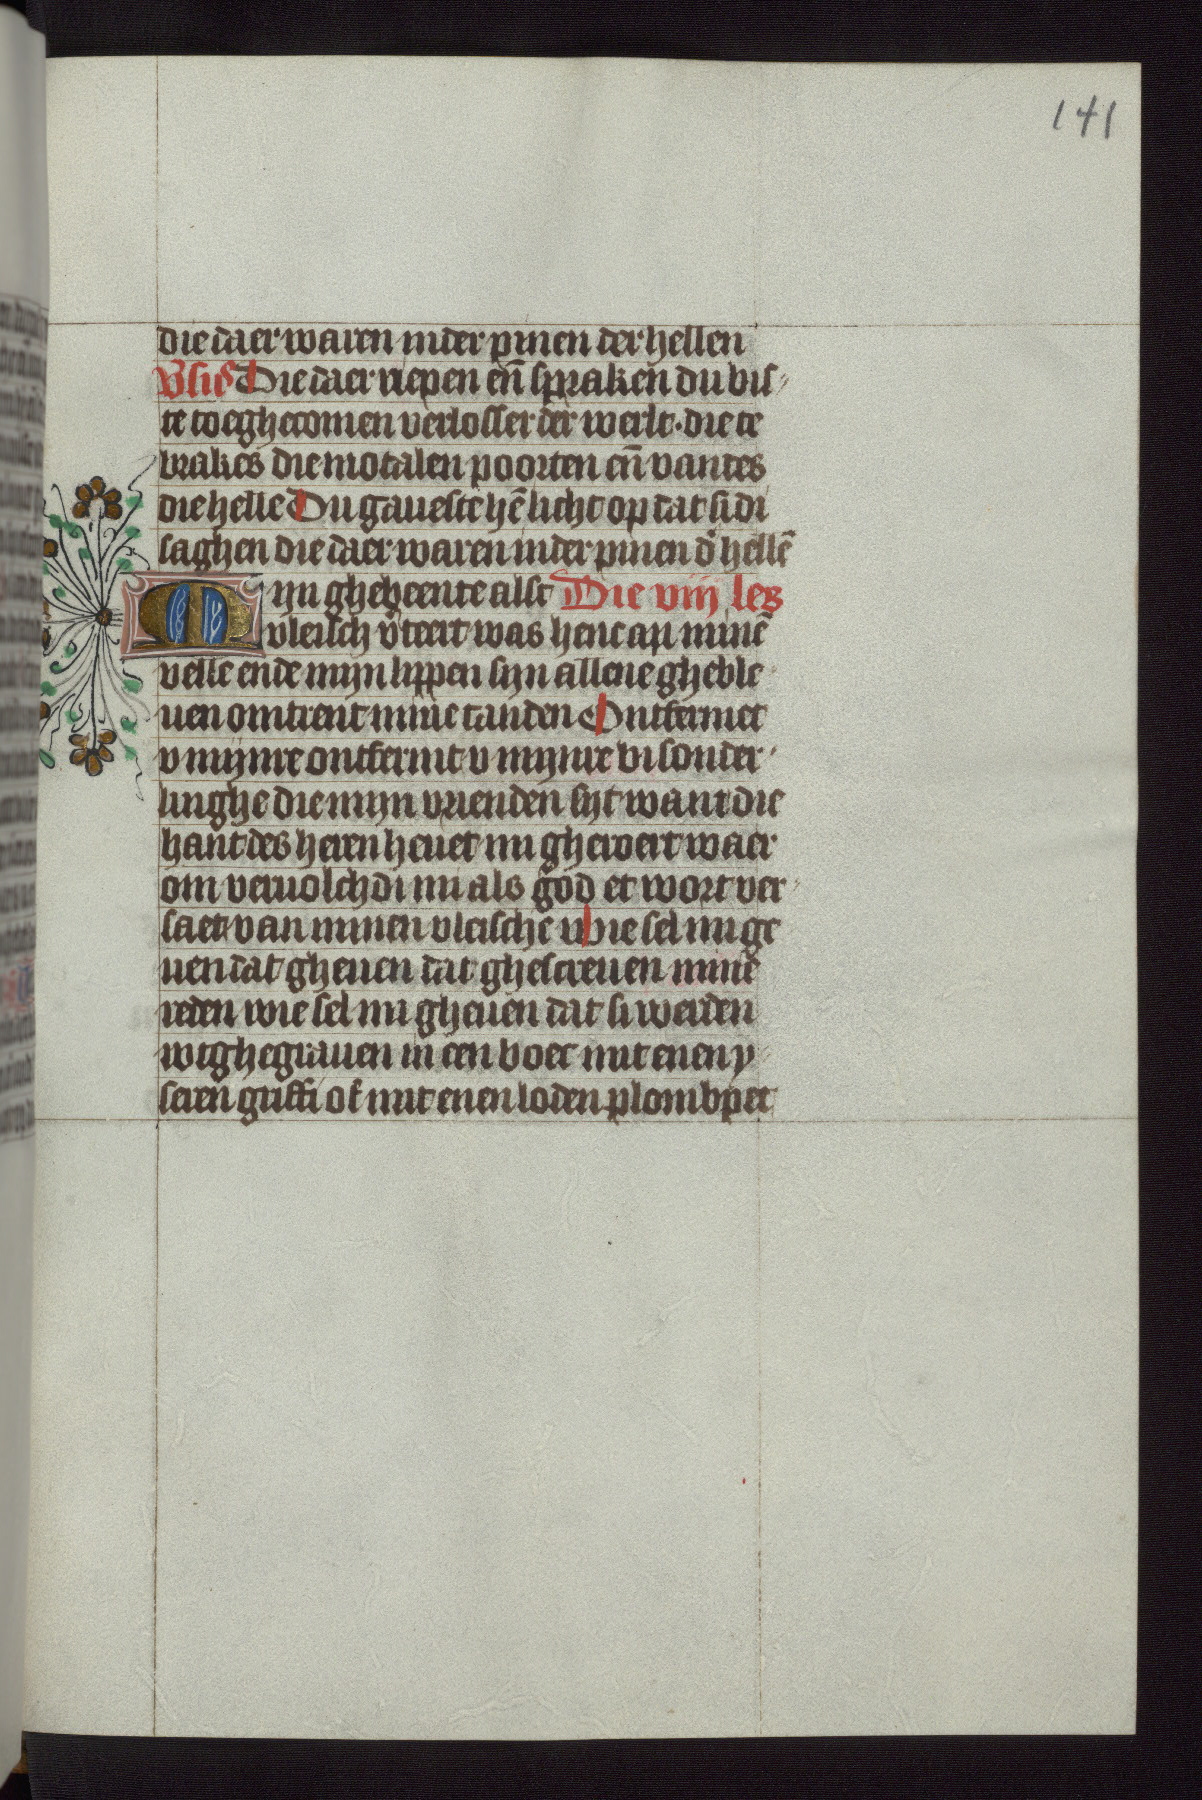 141
die daer waren in der pinen der hellen
Vsus Die daer riepen en̄ spraken du bis
te toeghecomen verlosser der werlt · die te
brakes die metalen poorten en̄ vantes
die helle Du gaueste hē licht op dat si di
saghen die daer waren in der pinen d' hellē
Mijn ghebeente alst Die viij les
vleisch v̄teert was henc an minē
velle ende mijn lippen sijn allene gheble
uen omtrent mine tanden Ontfermet
v mijnre ontfermt v mijnre bisonder
linghe die mijn vrienden sijt want die
hant des heren heuet mi gheroert waer
om veruolchdi mi als god et wort ver
saet van minen vleische Wie sel mi ge
uen dat gheuen dat ghescreuen minē
reden wie sel mi gheuen dat si werden
wtghegrauen in een boec mit enen y
seren griffi of mit enen loden plombpet